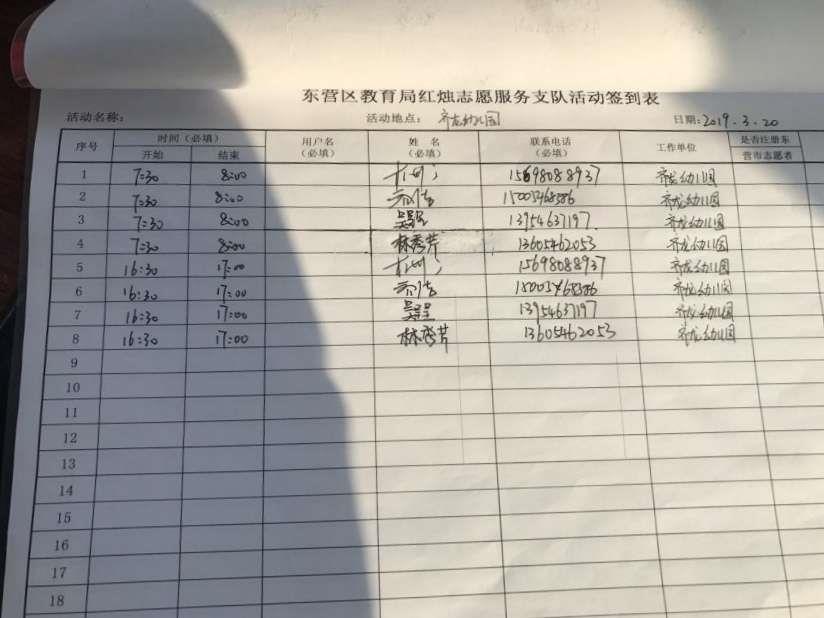 东营区教育局红烛志愿服务支队活动签到表
活动名称: 活动地点: 齐龙幼儿园 日期: 2019.3.20
序号 时间(必填) 用户名(必填) 姓名(必填) 联系电话(必填) 工作单位 是否注册东营市志愿者
开始 结束
1 7:30 8:00 15698088937 齐龙幼儿园
2 7:30 8:00 齐龙幼儿园
3 7:30 8:00 13954637197 齐龙幼儿园
4 7:30 8:00 林秀芹 13605462053 齐龙幼儿园
5 16:30 17:00 15698088937 齐龙幼儿园
6 16:30 17:00 齐龙幼儿园
7 16:30 17:00 13954637197 齐龙幼儿园
8 16:30 17:00 林秀芹 13605462053 齐龙幼儿园
9
10
11
12
13
14
15
16
17
18